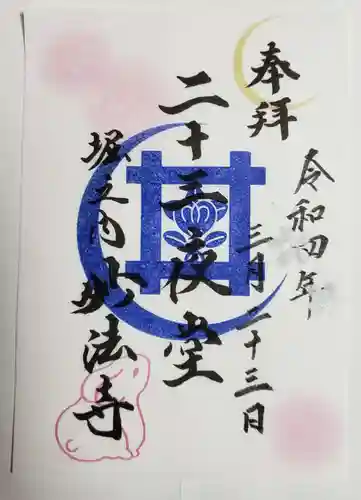 奉拝
令和四年
三月二十三日
二十三夜堂
堀之内妙法寺